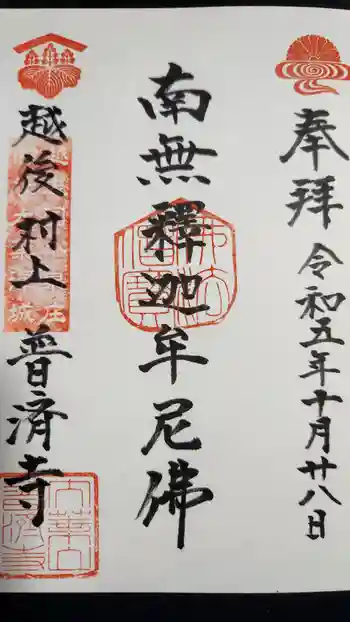 奉拝 令和五年十月廿八日
南無釋迦牟尼佛
越後村上 普済寺